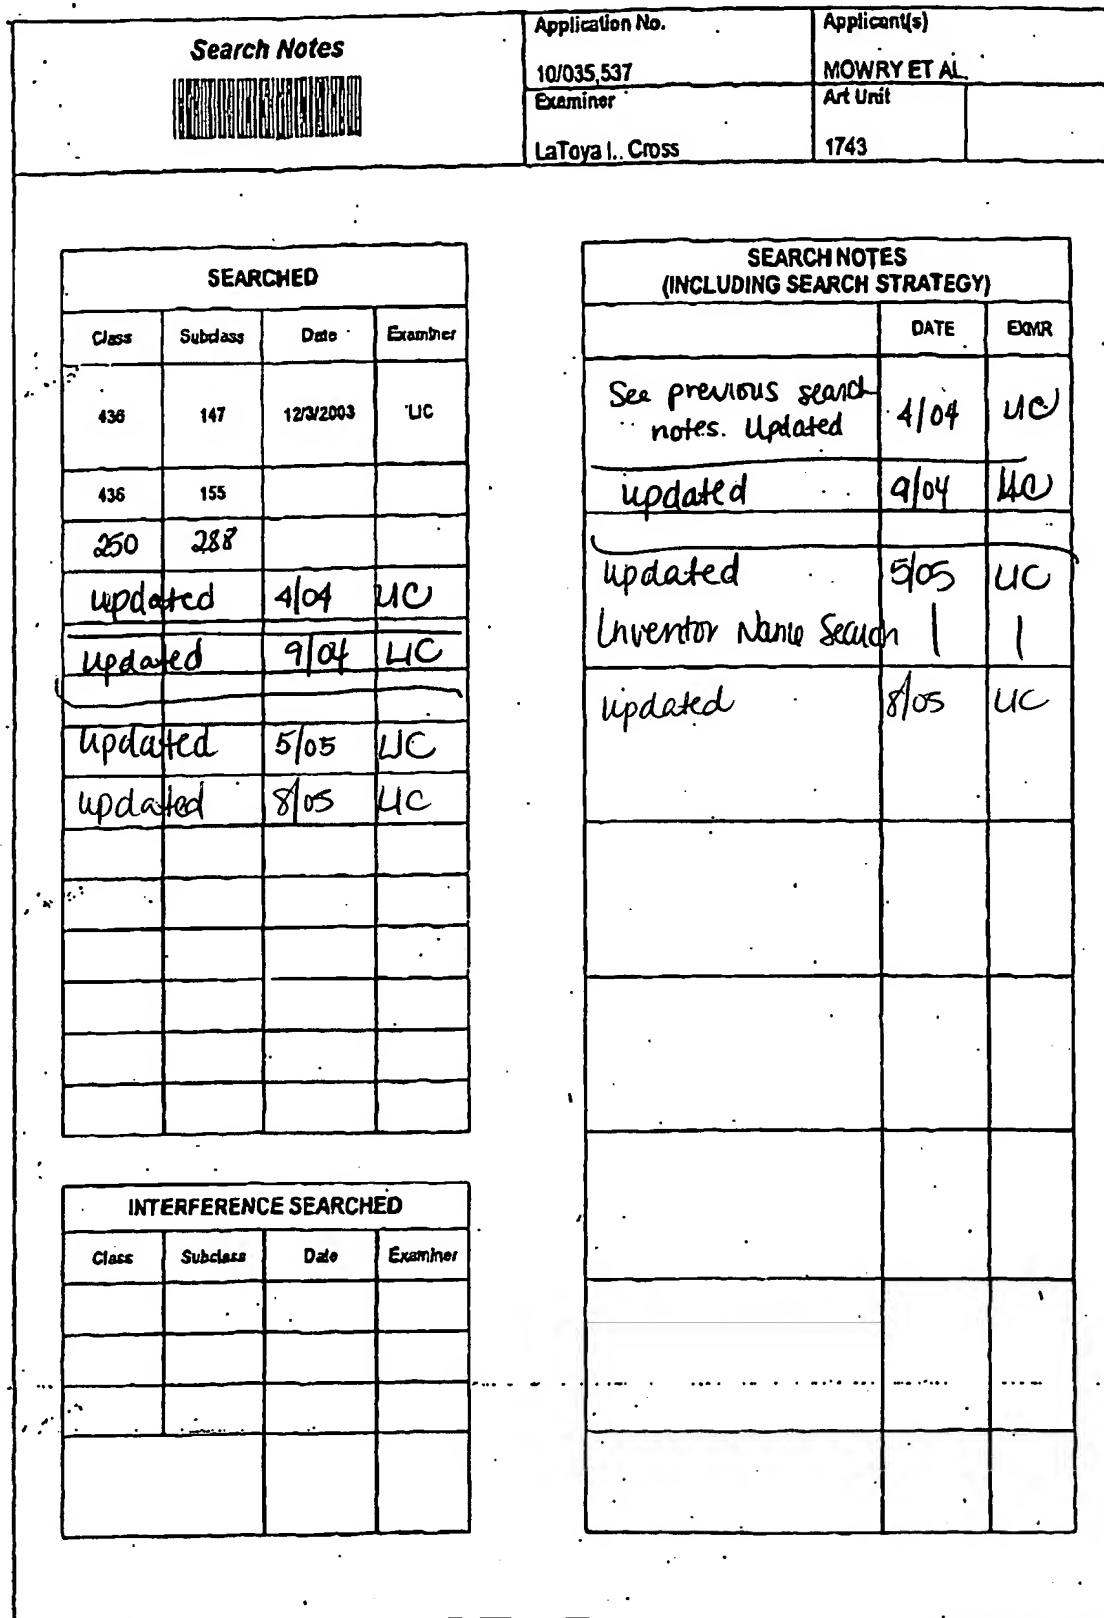 Search Notes
Application No.
10/035,537
Applicant(s)
MOWRY ET AL.
Examiner
LaToya I. Cross
Art Unit
1743
SEARCHED
Class Subclass Date Examiner
436 147 12/3/2003 LIC
436 155
250 288
updated 4/04 LIC
updated 9/04 LIC
updated 5/05 LIC
updated 8/05 LIC
INTERFERENCE SEARCHED
Class Subclass Date Examiner
SEARCH NOTES
(INCLUDING SEARCH STRATEGY)
DATE EXMR
See previous search
notes. Updated 4/04 LIC
updated 9/04 LIC
updated 5/05 LIC
Inventor Name Search | |
updated 8/05 LIC